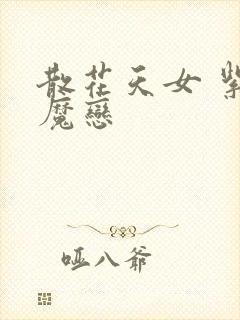 散花天女 紫
魔戀
哑八爷